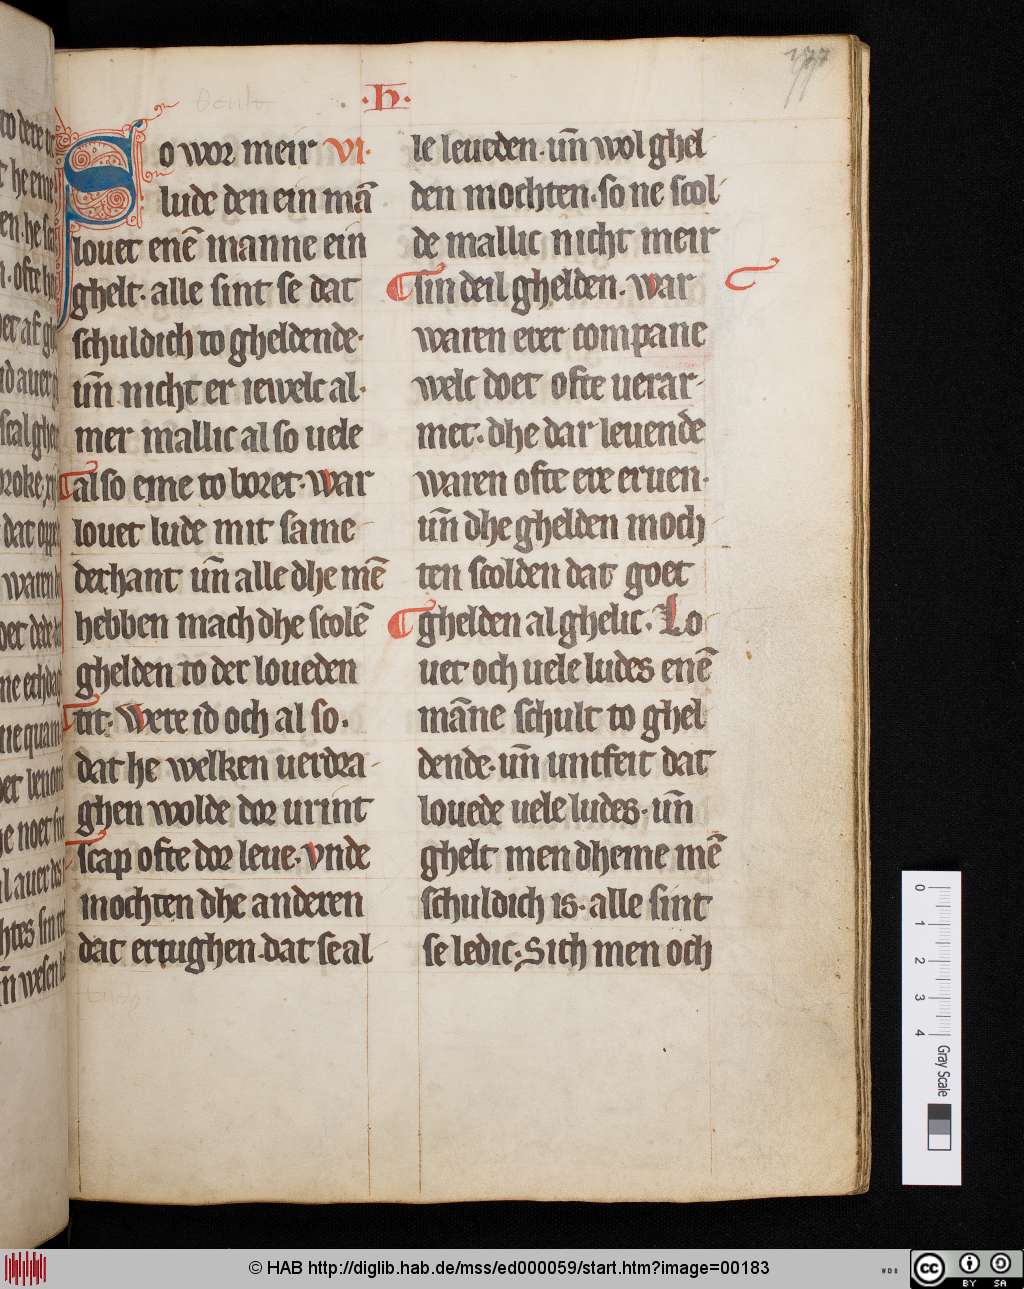 177
·h·
So wor meir vi·
lude den ein mā
louet enē manne ein
ghelt· alle sint se dat
schuldich to gheldende·
uñ nicht er iewelc al·
mer mallic al so uele
also eme to boret· war
louet lude mit same
derhant uñ alle dhe mē
hebben mach dhe scolē
ghelden to der loueden
tit· Were id och al so·
dat he welken uerdra
ghen wolde dor urint
scap ofte dor leue· vnde
mochten dhe anderen
dat ertughen· dat se al
le leueden· uñ wol ghel
den mochten· so ne scol
de mallic nicht meir
sin deil ghelden· war
waren erer compane
welc doet ofte uerar
met· dhe dar leuende
waren ofte ere eruen·
uñ dhe ghelden moch
ten scolden dat goet
ghelden al ghelic· Lo
uet och uele ludes enē
māne schult to ghel
dende· uñ untfeit dat
louede uele ludes· uñ
ghelt men dheme mē
schuldich is· alle sint
se ledic· Sith men och
0 1 2 3 4 Gray Scale
© HAB http://diglib.hab.de/mss/ed000059/start.htm?image=00183
WDB
cc BY SA